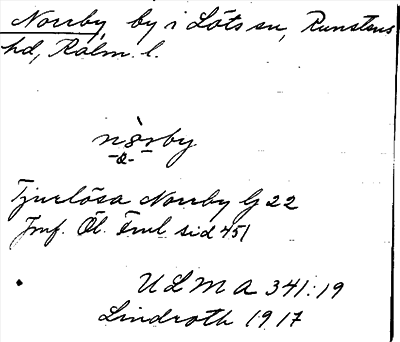 Norrby, by i Löts sn, Runstens
hd, Kalm. l.
nòrby
-a- -
Tjurlösa Norrby G 22
Jmf. Öl. Fml sid 451
ULMA 341:19
Lindroth 1917